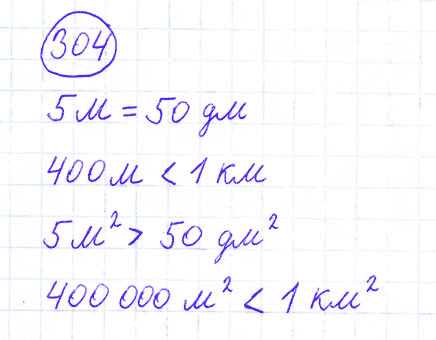 304
5 м = 50 дм
400 м < 1 км
5 м² > 50 дм²
400 000 м² < 1 км²